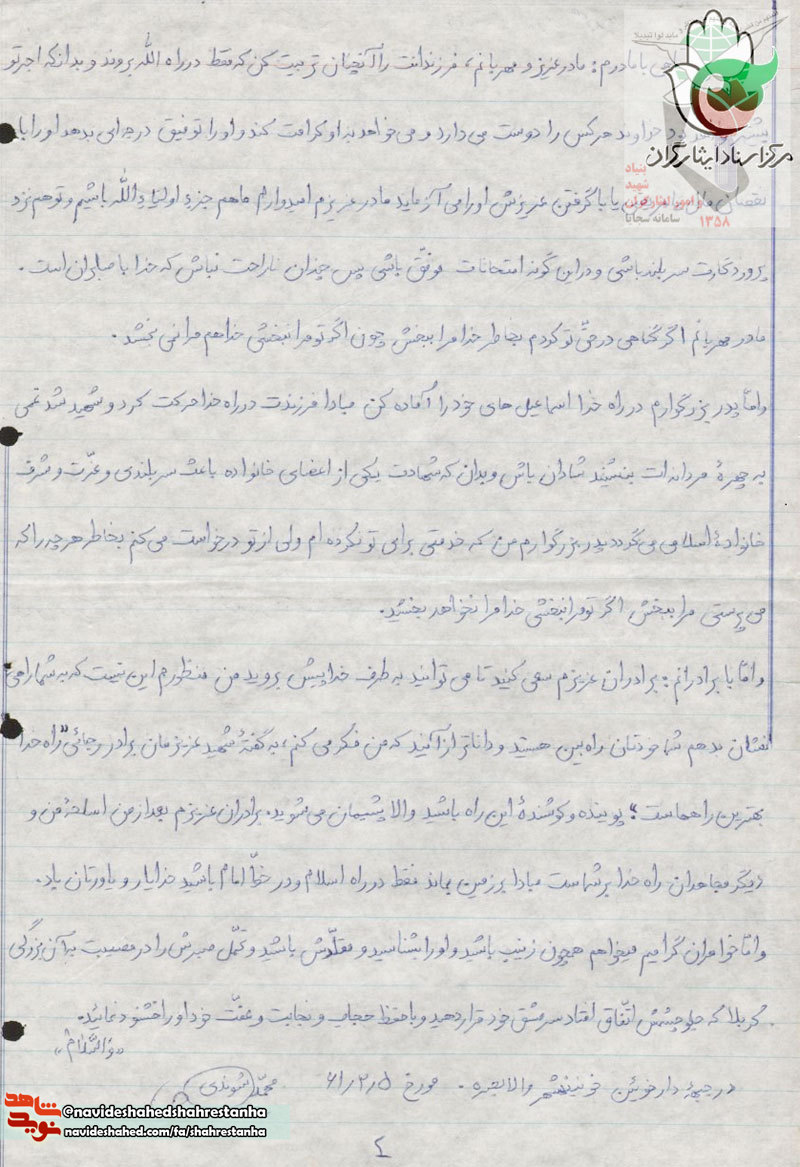 می با مادرم: مادر عزیز و مهربانم، فرزندانت را آنچنان تربیت کن که فقط در راه اللّه بروند و بدانکه اجر تو
خداوند هرکس را دوست می دارد و می خواهد به او کرامت کند و او را توفیق درجه ای بدهد او را با
یا با گرفتن عزیزش او را می آزماید مادر عزیزم امیدوارم ما هم جزء اولیاء اللّه باشیم و تو هم نزد
پروردگارت سربلند باشی و در این گونه امتحانات موفّق باشی پس چندان ناراحت نباش که خدا با صابران است.
مادر مهربانم اگر گناهی در حقّ تو کردم بخاطر خدا مرا ببخش چون اگر تو مرا نبخشی خدا هم مرا نمی بخشد.
و امّا پدر بزرگوارم در راه خدا اسماعیل های خود را آماده کن مبادا فرزندت در راه خدا حرکت کرد و شهید شد غمی
به چهرهٔ مردانه ات بنشیند شادان باش و بدان که شهادت یکی از اعضای خانواده باعث سربلندی و عزّت و شرف
خانوادهٔ اسلامی می گردد پدر بزرگوارم من که خدمتی برای تو نکرده ام ولی از تو درخواست می کنم بخاطر هر چه را که
می پرستی مرا ببخش اگر تو مرا نبخشی خدا مرا نخواهد بخشید.
و امّا با برادرانم: برادران عزیزم سعی کنید تا می توانید به طرف خدا پیش بروید من منظورم این نیست که به شما راهی
نشان بدهم شما خودتان راه بین هستید و داناتر از آنید که من فکر می کنم، به گفتهٔ شهید عزیزمان برادر رجائی «راه خدا
بهترین راهها است» پوینده و کوشندهٔ این راه باشید والا پشیمان می شوید. برادران عزیزم بعد از من اسلحهٔ من و
دیگر مجاهدان راه خدا بر شماست مبادا بر زمین بماند فقط در راه اسلام و در خطّ امام باشید خدا یار و یاورتان باد.
و امّا خواهران گرامیم میخواهم همچون زینب باشید و او را بشناسید و مقلّدش باشید و تحمّل صبرش را در مصیبت به آن بزرگی
کربلا که جلو چشمش اتّفاق افتاد سرمشق خود قرار دهید و با حفظ حجاب و نجابت و عفّت خود او را خشنود نمائید.
«والسّلام»
در جبههٔ دارخوئن خونینشهر والابصره. مورخ ۶۱/۲/۵ محمّد شوندی
۴
مرکز اسناد ایثارگران
بنیاد
شهید
و امور ایثارگران
سامانه سجایا
۱۳۵۸
نوید شاهد
@navideshahedshahrestanha
navideshahed.com/fa/shahrestanha